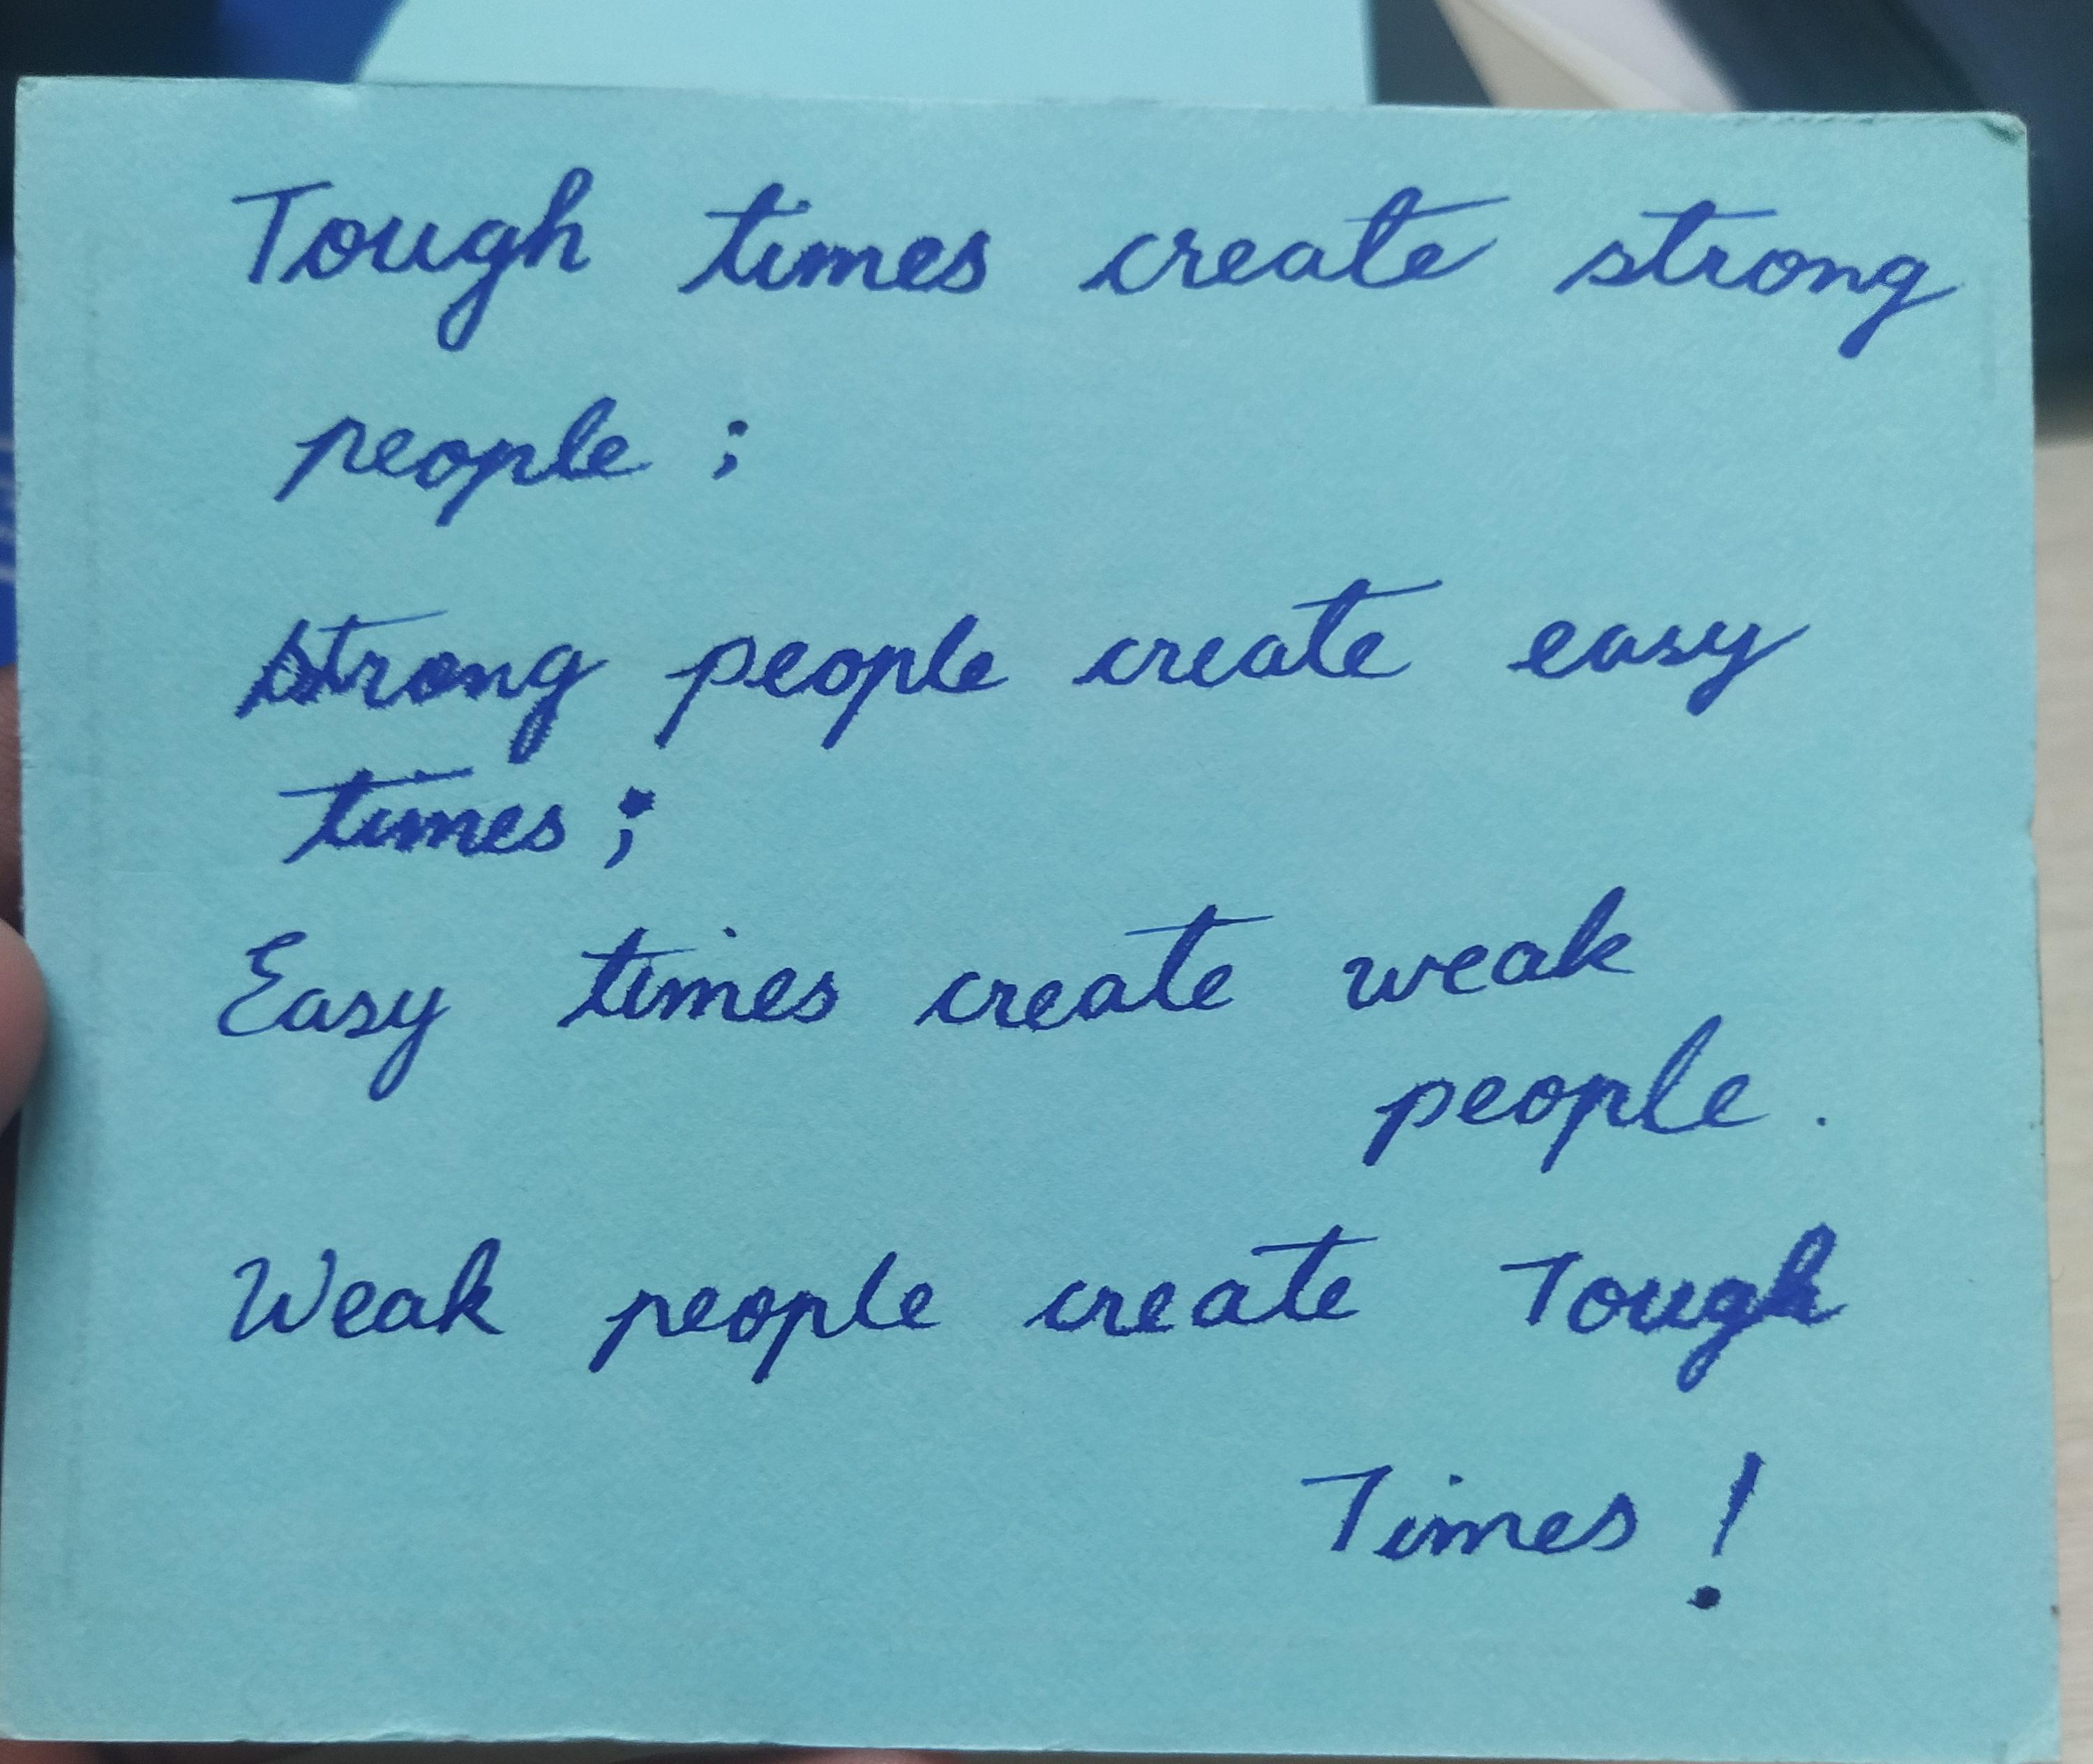 Tough times create strong
people ;
strong people create easy
times ;
Easy times create weak
people .
Weak people create Tough
Times !